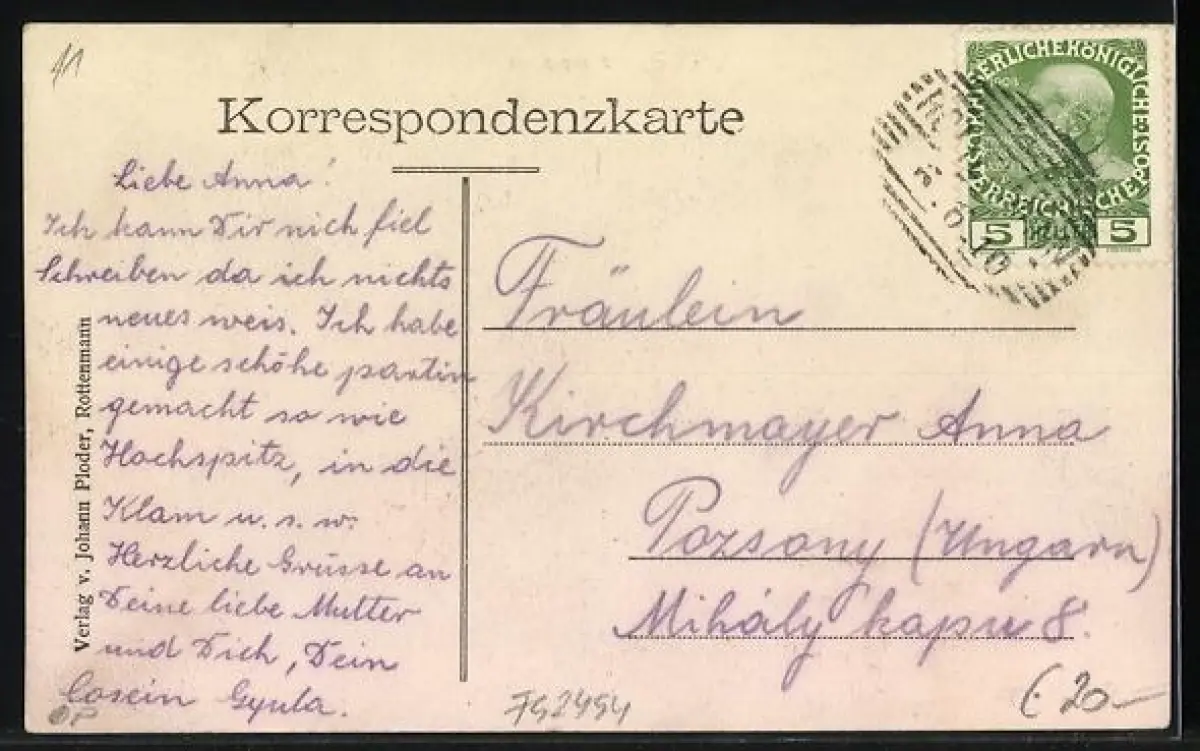 Korrespondenzkarte
Liebe Anna!
Ich kann Dir nich fiel
Schreiben da ich nichts
neues weis. Ich habe
einige schöhe partin
gemacht so wie
Hochspitz, in die
Klam u. s. w.
Herzliche Grüsse an
Deine liebe Mutter
und Dich, Dein
Cosein Gyula.
Verlag v. Johann Ploder, Rottenmann
KAISERLICHEKÖNIGLICHE
ÖSTERREICHISCHEPOST
5 HELLER 5
Fräulein
Kirchmayer Anna
Pozsony (Ungarn)
Mihály kapu 8.
752454
20-